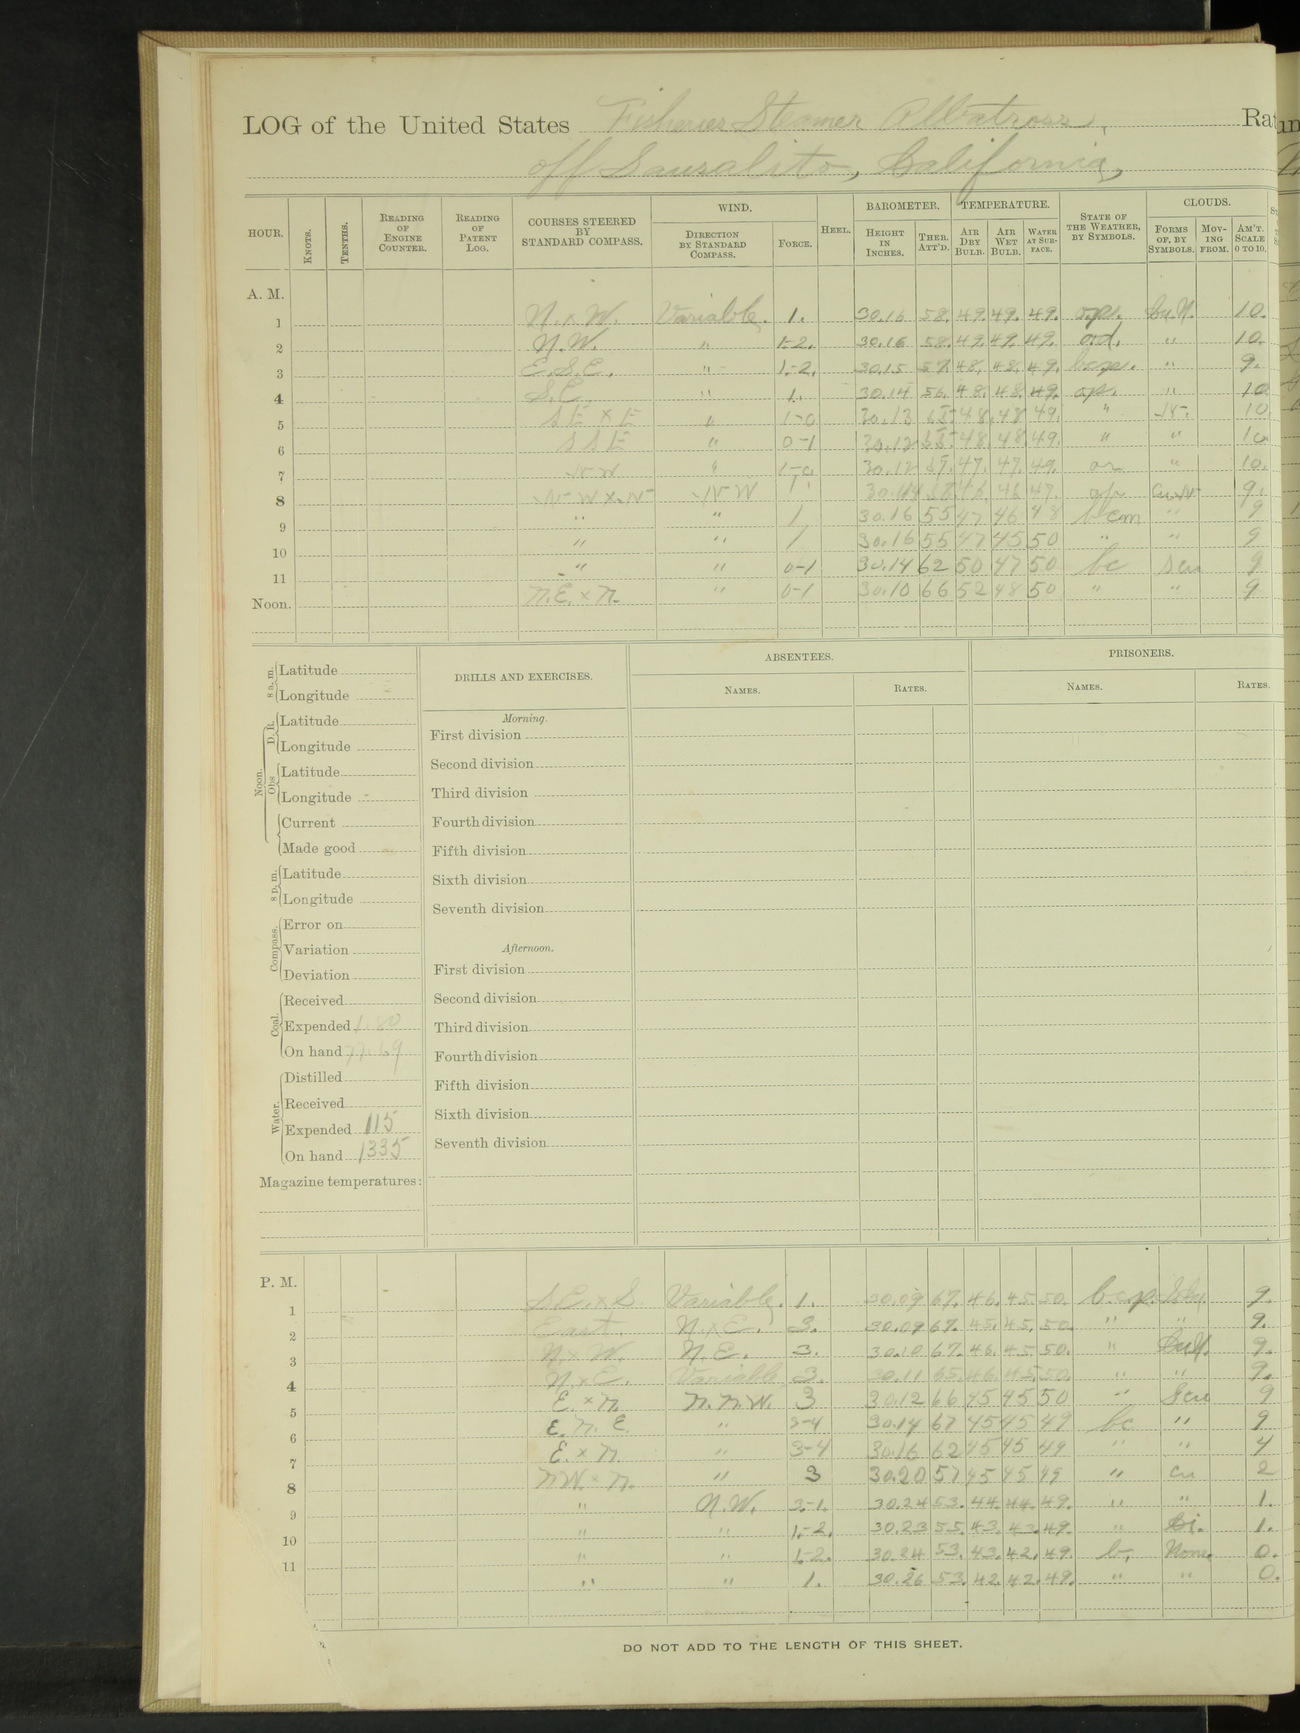 LOG of the United States Fisheries Steamer Albatross, Rat
off Sausalito, California,
HOUR. KNOTS. TENTHS. READING OF ENGINE COUNTER. READING OF PATENT LOG. COURSES STEERED BY STANDARD COMPASS. WIND. DIRECTION BY STANDARD COMPASS. FORCE. HEEL. BAROMETER. HEIGHT IN INCHES. THER. ATT'D. TEMPERATURE. AIR DRY BULB. AIR WET BULB. WATER AT SURFACE. STATE OF THE WEATHER, BY SYMBOLS. CLOUDS. FORMS OF, BY SYMBOLS. MOVING FROM. AM'T. SCALE 0 TO 10.
A. M.
1 N. x W. Variable. 1. 30.16 58. 49. 49. 49. Cu.N. 10.
2 N.W. " 1-2. 30.16 58. 49. 49. 49. ord, " 10.
3 E.S.E. " 1-2. 30.15 57. 48. 48. 49. " 9.
4 S.E. " 1. 30.14 56. 48. 48. 49. op. " 10
5 SE x E " 1-0 30.13 48. 48 49. " N. 10
6 SSE " 0-1 30.12 48. 48 49. " " 10
7 NW " 1-0 30.12 47. 47. 49. " 10.
8 NW x N NW 1. 46 46 47. Cu.N 9.
9 " " 1 30.16 55 47 46 48 bcm " 9
10 " " 1 30.16 55 47 45 50 " " 9
11 " " 0-1 30.14 62 50 47 50 bc Scu 9
Noon. N.E. x N. " 0-1 30.10 66 52 48 50 " " 9
8 a. m. Latitude
Longitude
Noon. D. R. Latitude
Longitude
Obs Latitude
Longitude
Current
Made good
8 p. m. Latitude
Longitude
Compass. Error on
Variation
Deviation
Coal. Received
Expended 1.80
On hand 77.69
Water. Distilled
Received
Expended 115
On hand 1335
Magazine temperatures:
DRILLS AND EXERCISES.
Morning.
First division
Second division
Third division
Fourth division
Fifth division
Sixth division
Seventh division
Afternoon.
First division
Second division
Third division
Fourth division
Fifth division
Sixth division
Seventh division
ABSENTEES.
NAMES. RATES.
PRISONERS.
NAMES. RATES.
P. M.
1 S.E. x S. Variable. 1. 30.09 67. 46. 45. 50. bcp. 9.
2 East. N. x E. 3. 30.09 67. 45. 45. 50. " " 9.
3 N. x W. N.E. 3. 30.10 67. 46. 45. 50. " CuN. 9.
4 N. x E. Variable 3. 30.11 65. 46. 45. 50. " " 9.
5 E. x N. N.N.W. 3 30.12 66 45 45 50 " Scu 9
6 E. N. E. " 3-4 30.14 67 45 45 49 bc " 9
7 E. x N. " 3-4 30.16 62 45 45 49 " " 4
8 NW. x N. " 3 30.20 57 45 45 49 " cu 2
9 " N.W. 3-1. 30.24 53. 44. 44. 49. " " 1.
10 " " 1-2. 30.23 55. 43. 43. 49. " Ci. 1.
11 " " 1-2. 30.24 53. 43. 42. 49. b. None. 0.
" " 1. 30.26 53. 42. 42. 49. " " 0.
DO NOT ADD TO THE LENGTH OF THIS SHEET.